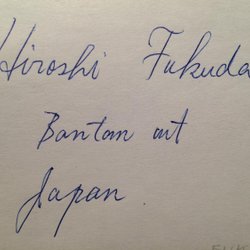 Hiroshi Fukuda
Bantam wt
Japan